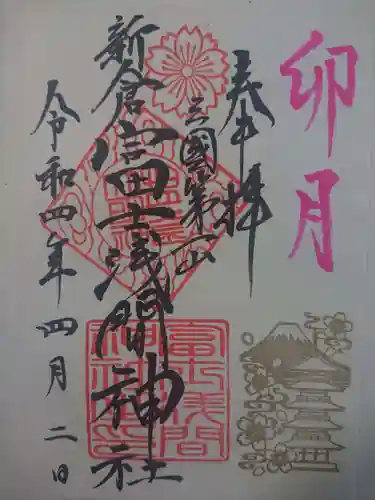 卯月
奉拝
三國第一山
新倉富士浅間神社
令和四年四月二日
富士浅間